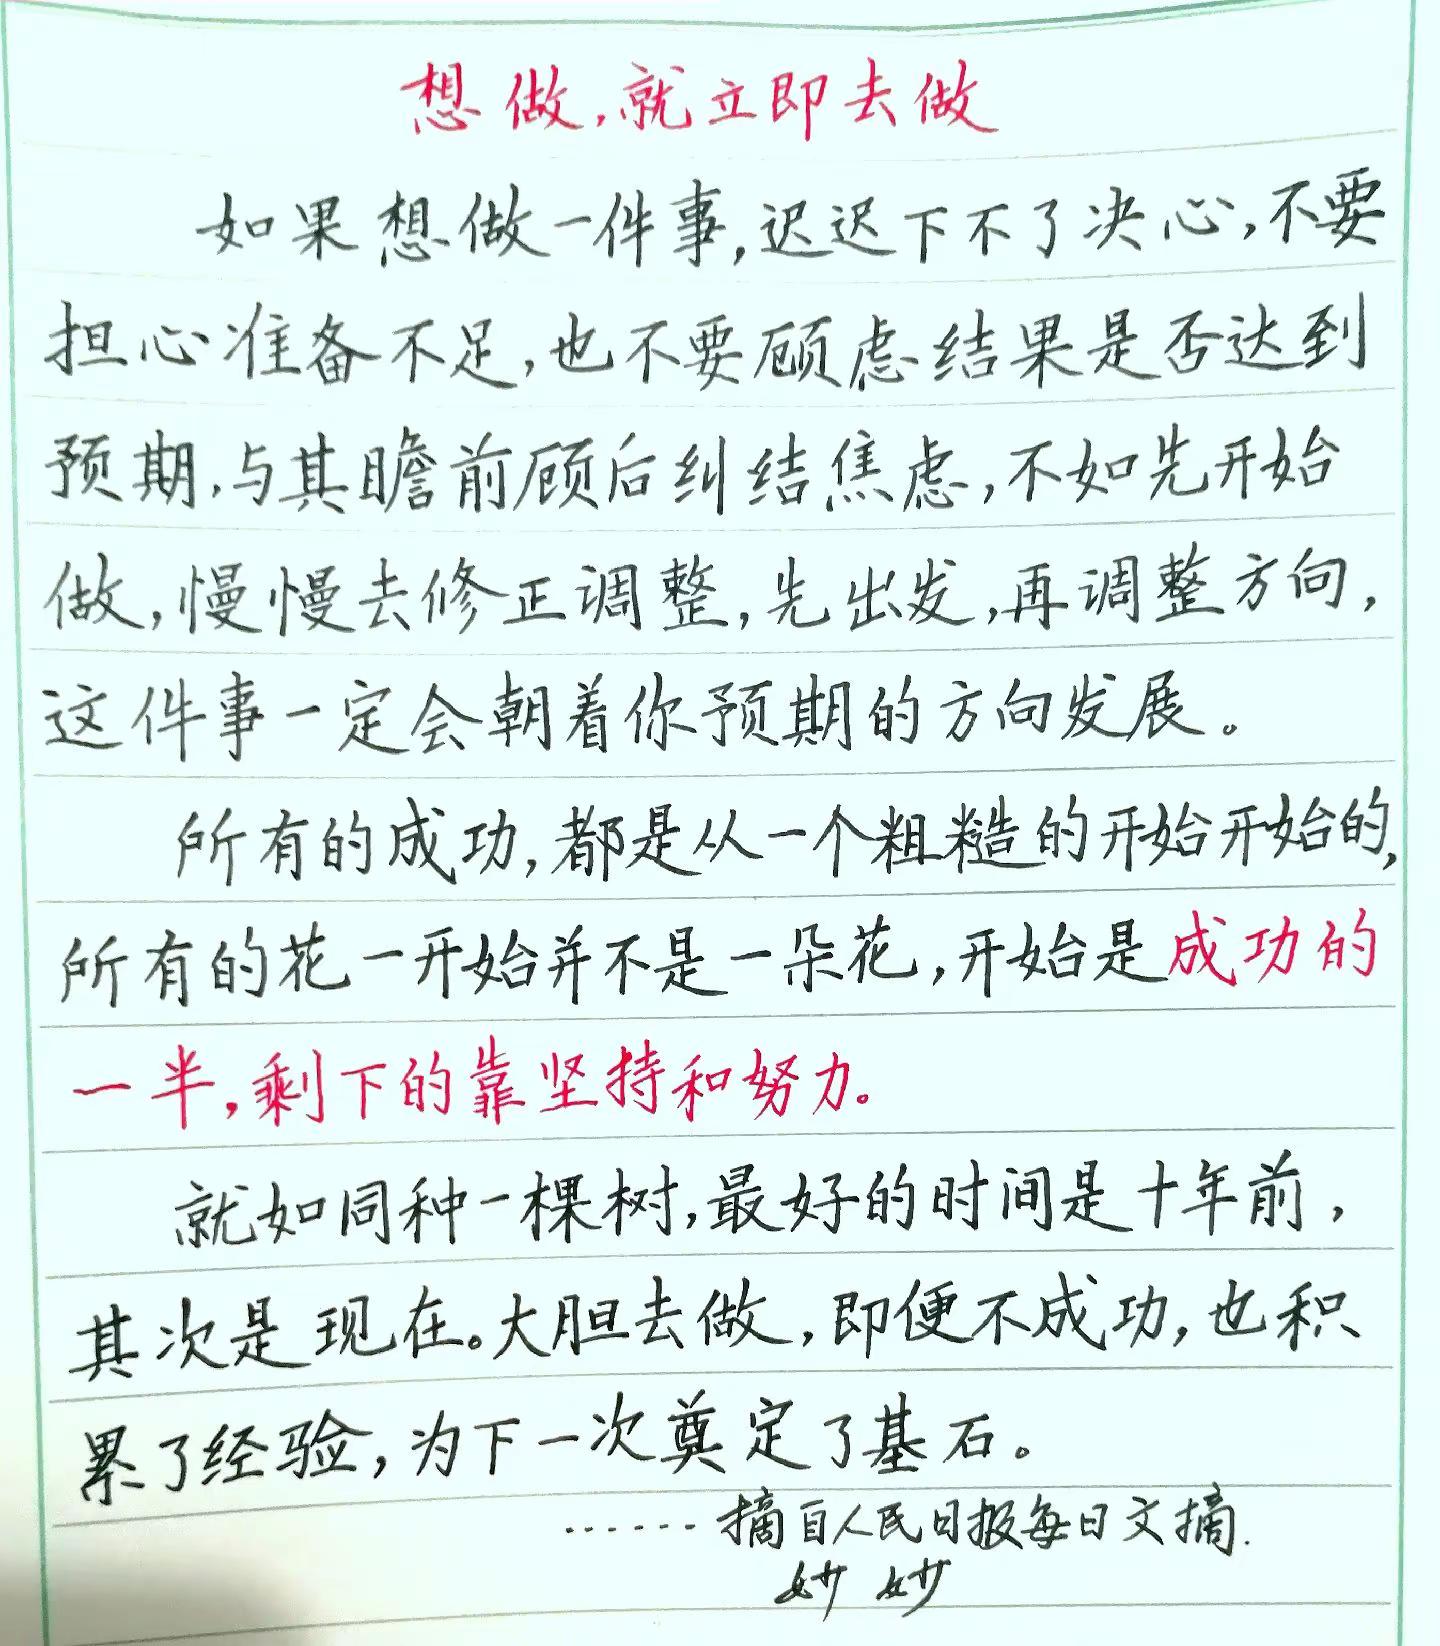 想做,就立即去做
如果想做一件事,迟迟下不了决心,不要
担心准备不足,也不要顾虑结果是否达到
预期,与其瞻前顾后纠结焦虑,不如先开始
做,慢慢去修正调整,先出发,再调整方向,
这件事一定会朝着你预期的方向发展。
所有的成功,都是从一个粗糙的开始开始的,
所有的花一开始并不是一朵花,开始是成功的
一半,剩下的靠坚持和努力。
就如同种一棵树,最好的时间是十年前,
其次是现在。大胆去做,即便不成功,也积
累了经验,为下一次奠定了基石。
......摘自人民日报每日文摘.
妙妙